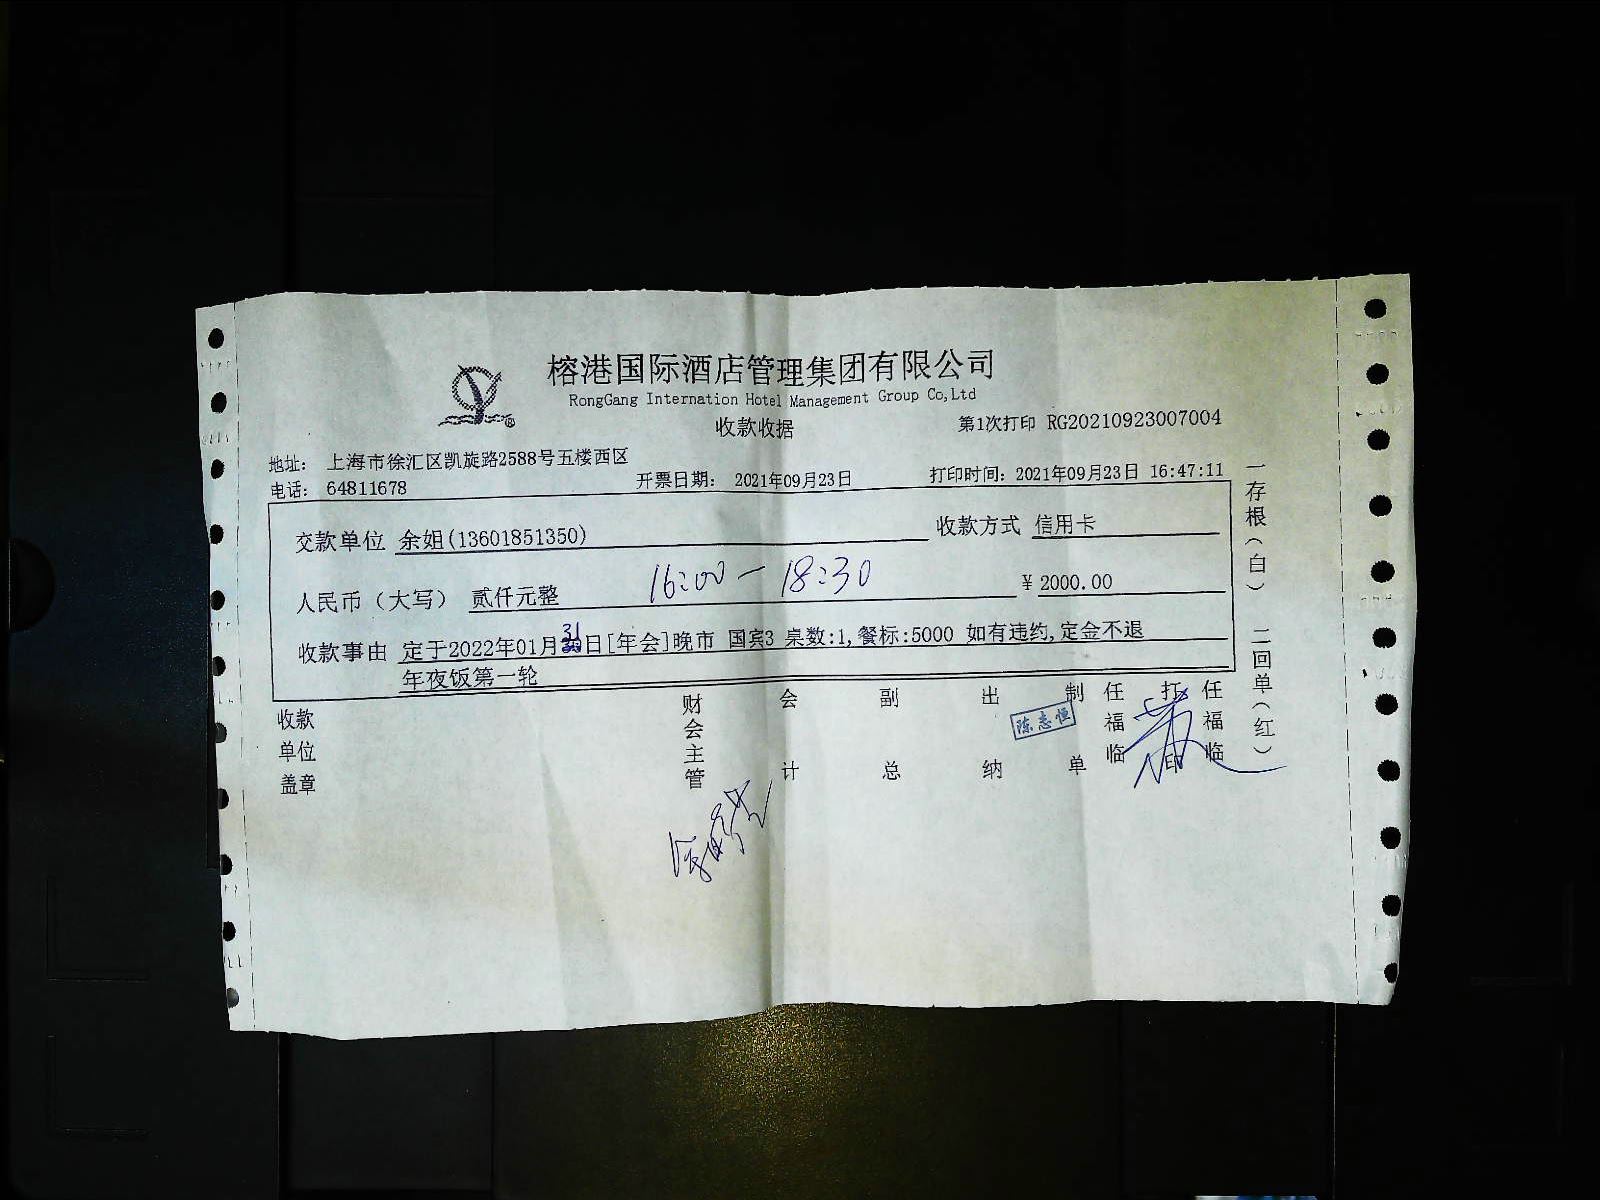 榕港国际酒店管理集团有限公司
RongGang Internation Hotel Management Group Co,Ltd
收款收据
第1次打印 RG20210923007004
地址: 上海市徐汇区凯旋路2588号五楼西区
电话: 64811678
开票日期: 2021年09月23日
打印时间: 2021年09月23日 16:47:11
交款单位 余姐(13601851350)
收款方式 信用卡
人民币（大写） 贰仟元整
16:00-18:30
¥2000.00
收款事由 定于2022年01月31日[年会]晚市 国宾3 桌数:1,餐标:5000 如有违约,定金不退
年夜饭第一轮
收款单位盖章
财会主管
会计
副总
出纳
陈志恒
制单
任福临
打印
任福临
一存根(白)
二回单(红)